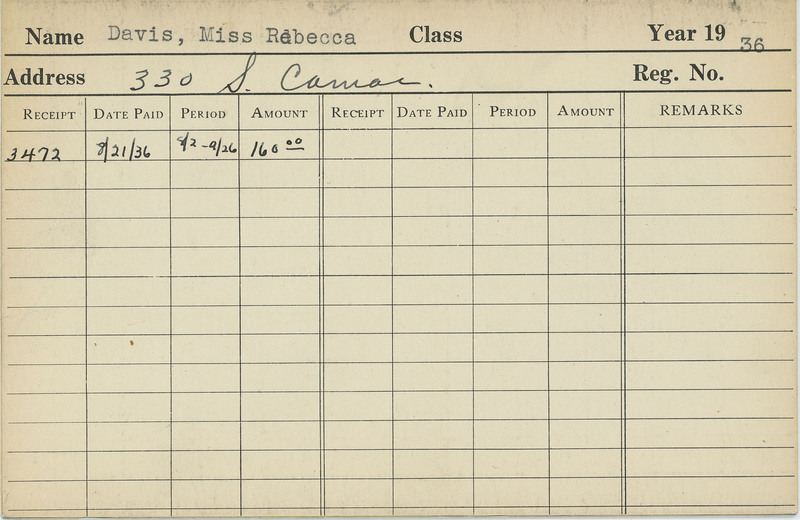 Name Davis, Miss Rebecca Class Year 19 36
Address 330 S. Camac. Reg. No.
RECEIPT DATE PAID PERIOD AMOUNT RECEIPT DATE PAID PERIOD AMOUNT REMARKS
3472 8/21/36 8/2-9/26 160 00